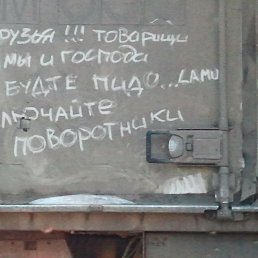 РУЗЬЯ!!! ТОВАРИЩИ
МЫ И ГОСПОДА
БУДТЕ ПИДО...САМИ
ЛЮЧАЙТЕ
ПОВОРОТНИКИ